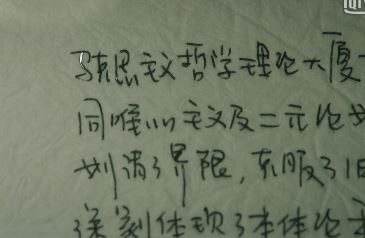 马克思主义哲学理论大厦
同唯心主义及二元论划
划清了界限，克服了旧
深刻体现了本体论